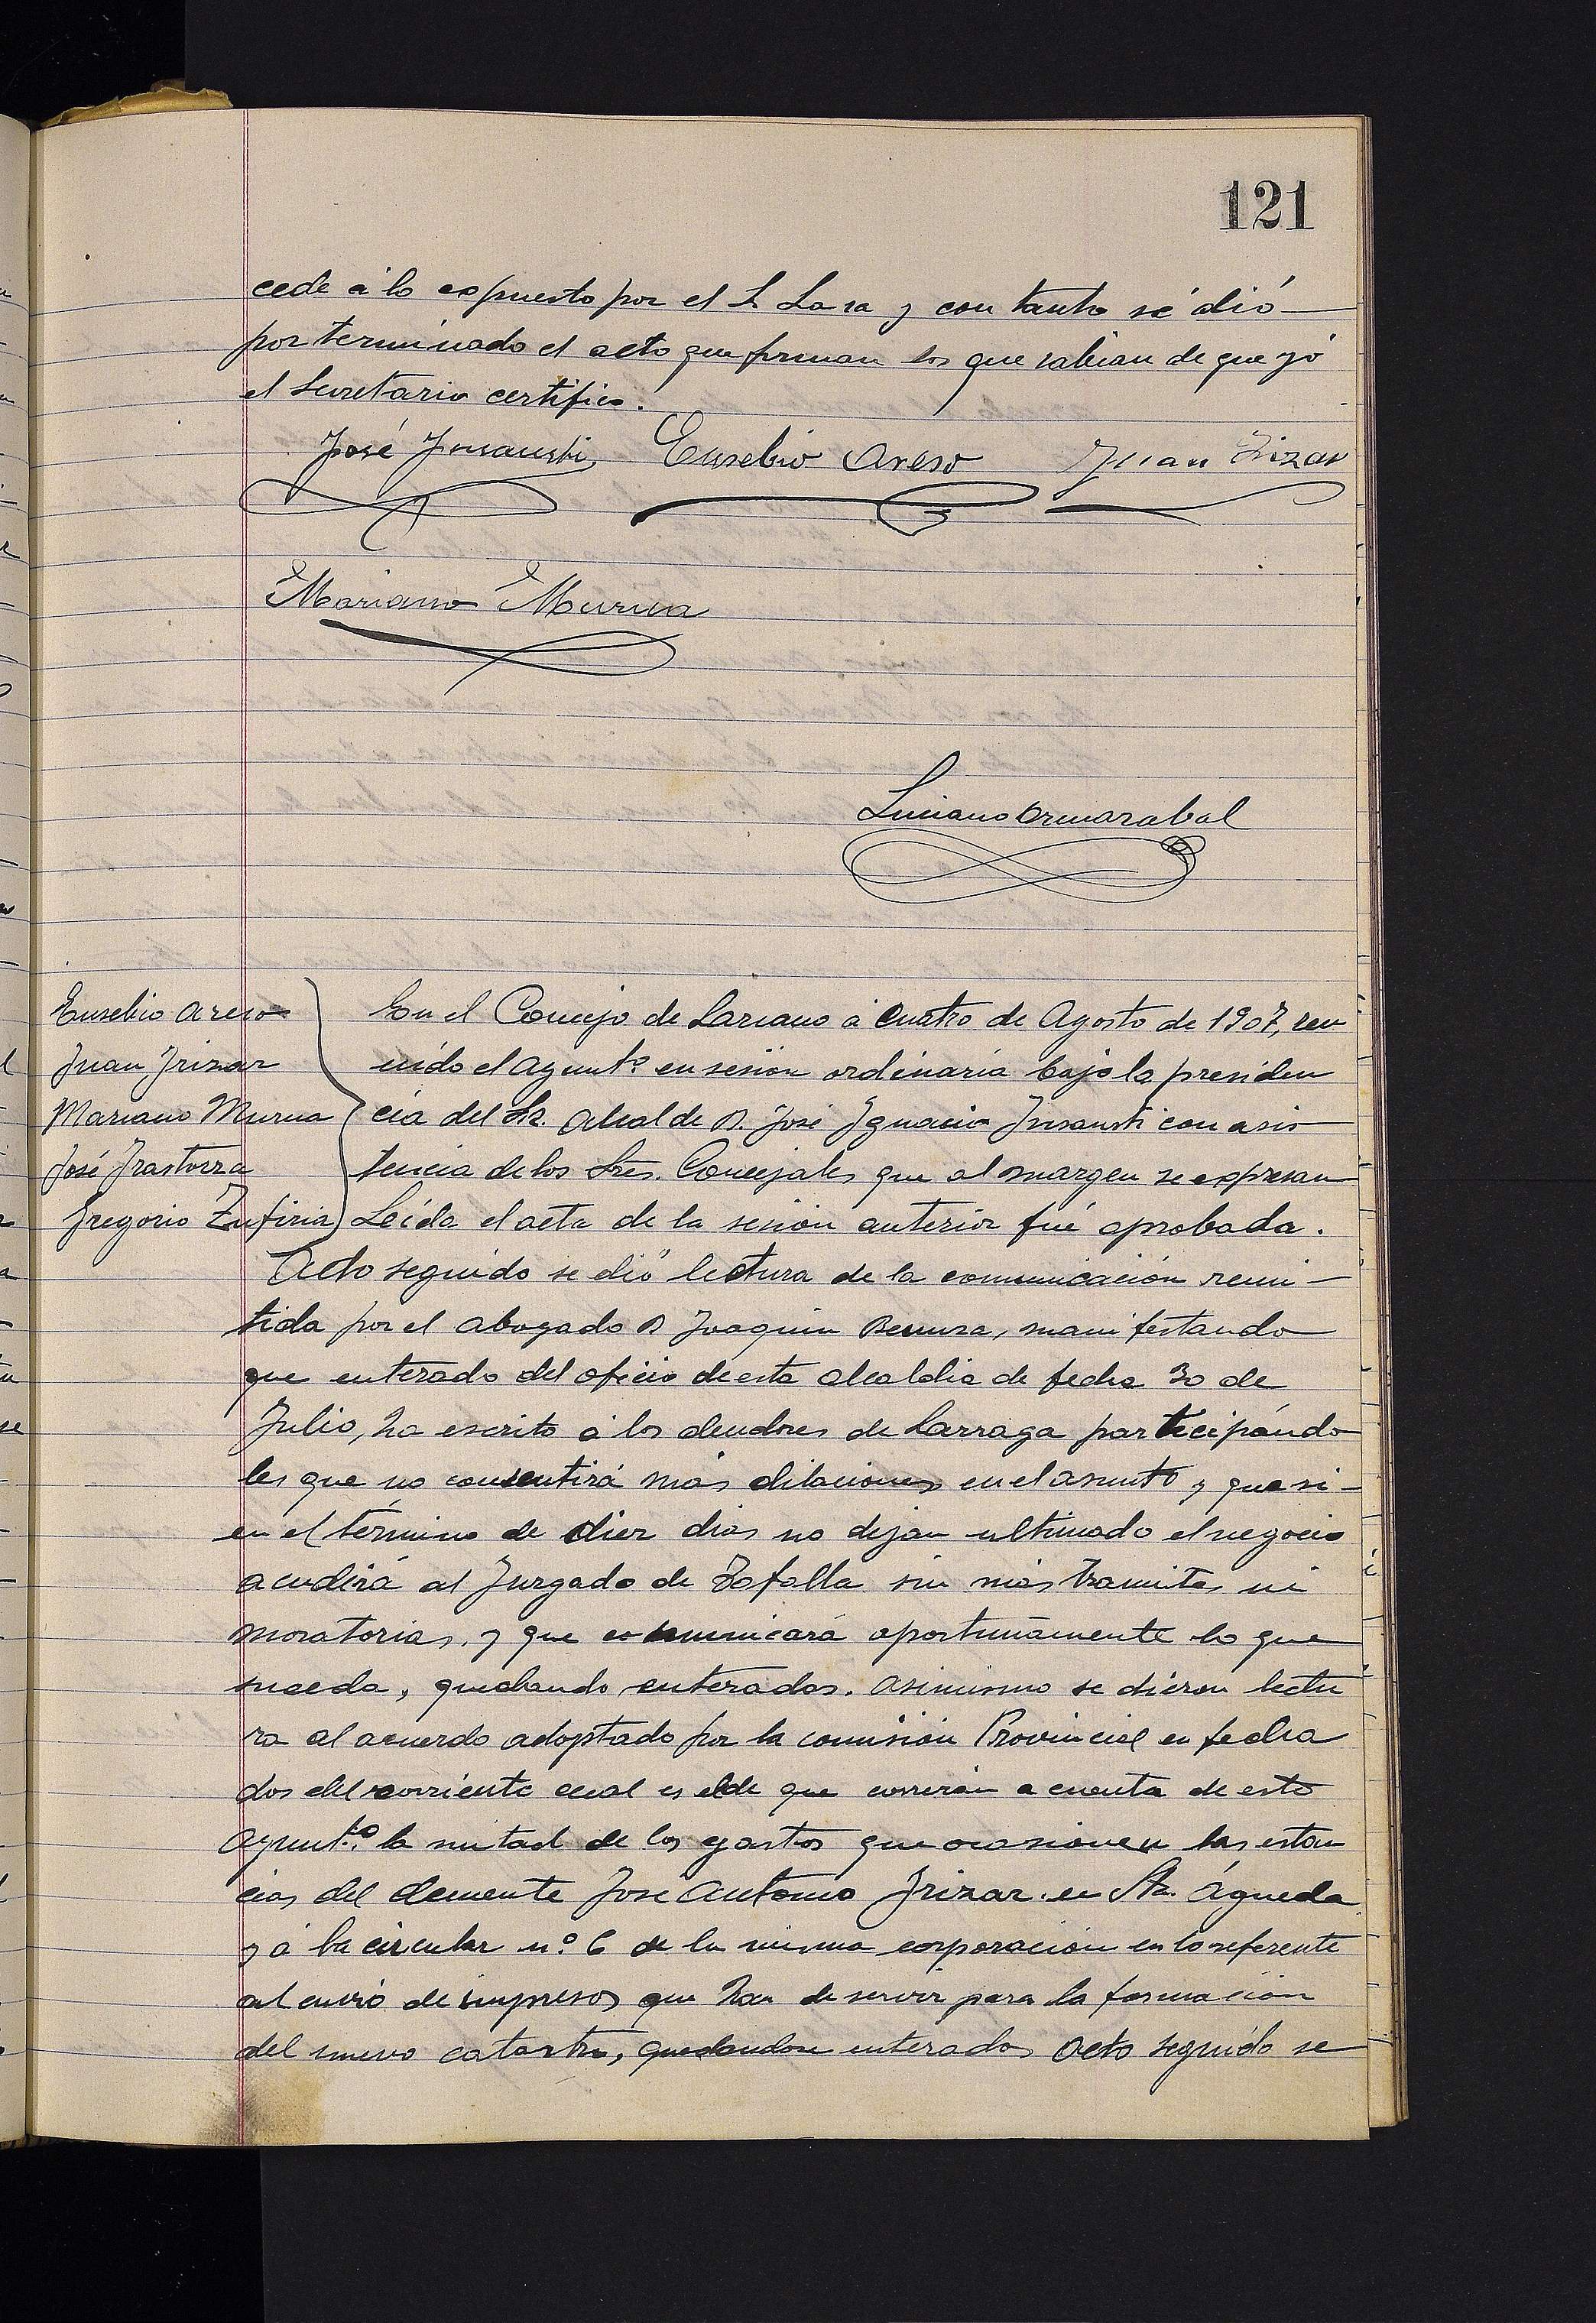 121
cede á lo expuesto por el S. Lasa y con tanto sé dió
por terminado el acto que firman los que sabian de que yó
el Secretario certifico.
José Insausti Eusebio Areso Juan Irizar
Mariano Murua
Luciano Ormazabal
Eusebio Areso
Juan Irizar
Mariano Murua
José Irastorza
Gregorio Zufiria
En el Concejo de Lazcano á cuatro de Agosto de 1907, reu
nido el Ayunt.º en sesión ordinaria bajo la presiden
cia del Sr. Alcalde D. José Ignacio Insausti con asis
tencia de los Sres. Concejales que al margen se expresan
Leida el acta de la sesión anterior fué aprobada.
Acto seguido se dió lectura de la comunicación remi-
tida por el abogado D Joaquin manifestando
que enterado del oficio de esta alcaldia de fecha 30 de
Julio, ha escrito á los deudores de Larraga participándo
les que no consentirá más dilaciones en el asunto y que si-
en el término de diez dias no dejan ultimado el negocio
acudirá al Juzgado de Tafalla sin más tramites ni
moratorias, y que comunicará oportunamente lo que
suceda, quedando enterados. Asimismo se dieron lectu
ra al acuerdo adoptado por la comisión Provincial en fecha
dos del corriente cual es el de que correrán a cuenta de este
Ayunt.to la mitad de los gastos que ocasionen las estan
cias del demente José Antonio Irizar en Sta. Águeda
y á la circular n.º 6 de la misma corporación en lo referente
al envió de impresos que han de servir para la formación
del nuevo catastro, quedandose enterados Acto seguido se